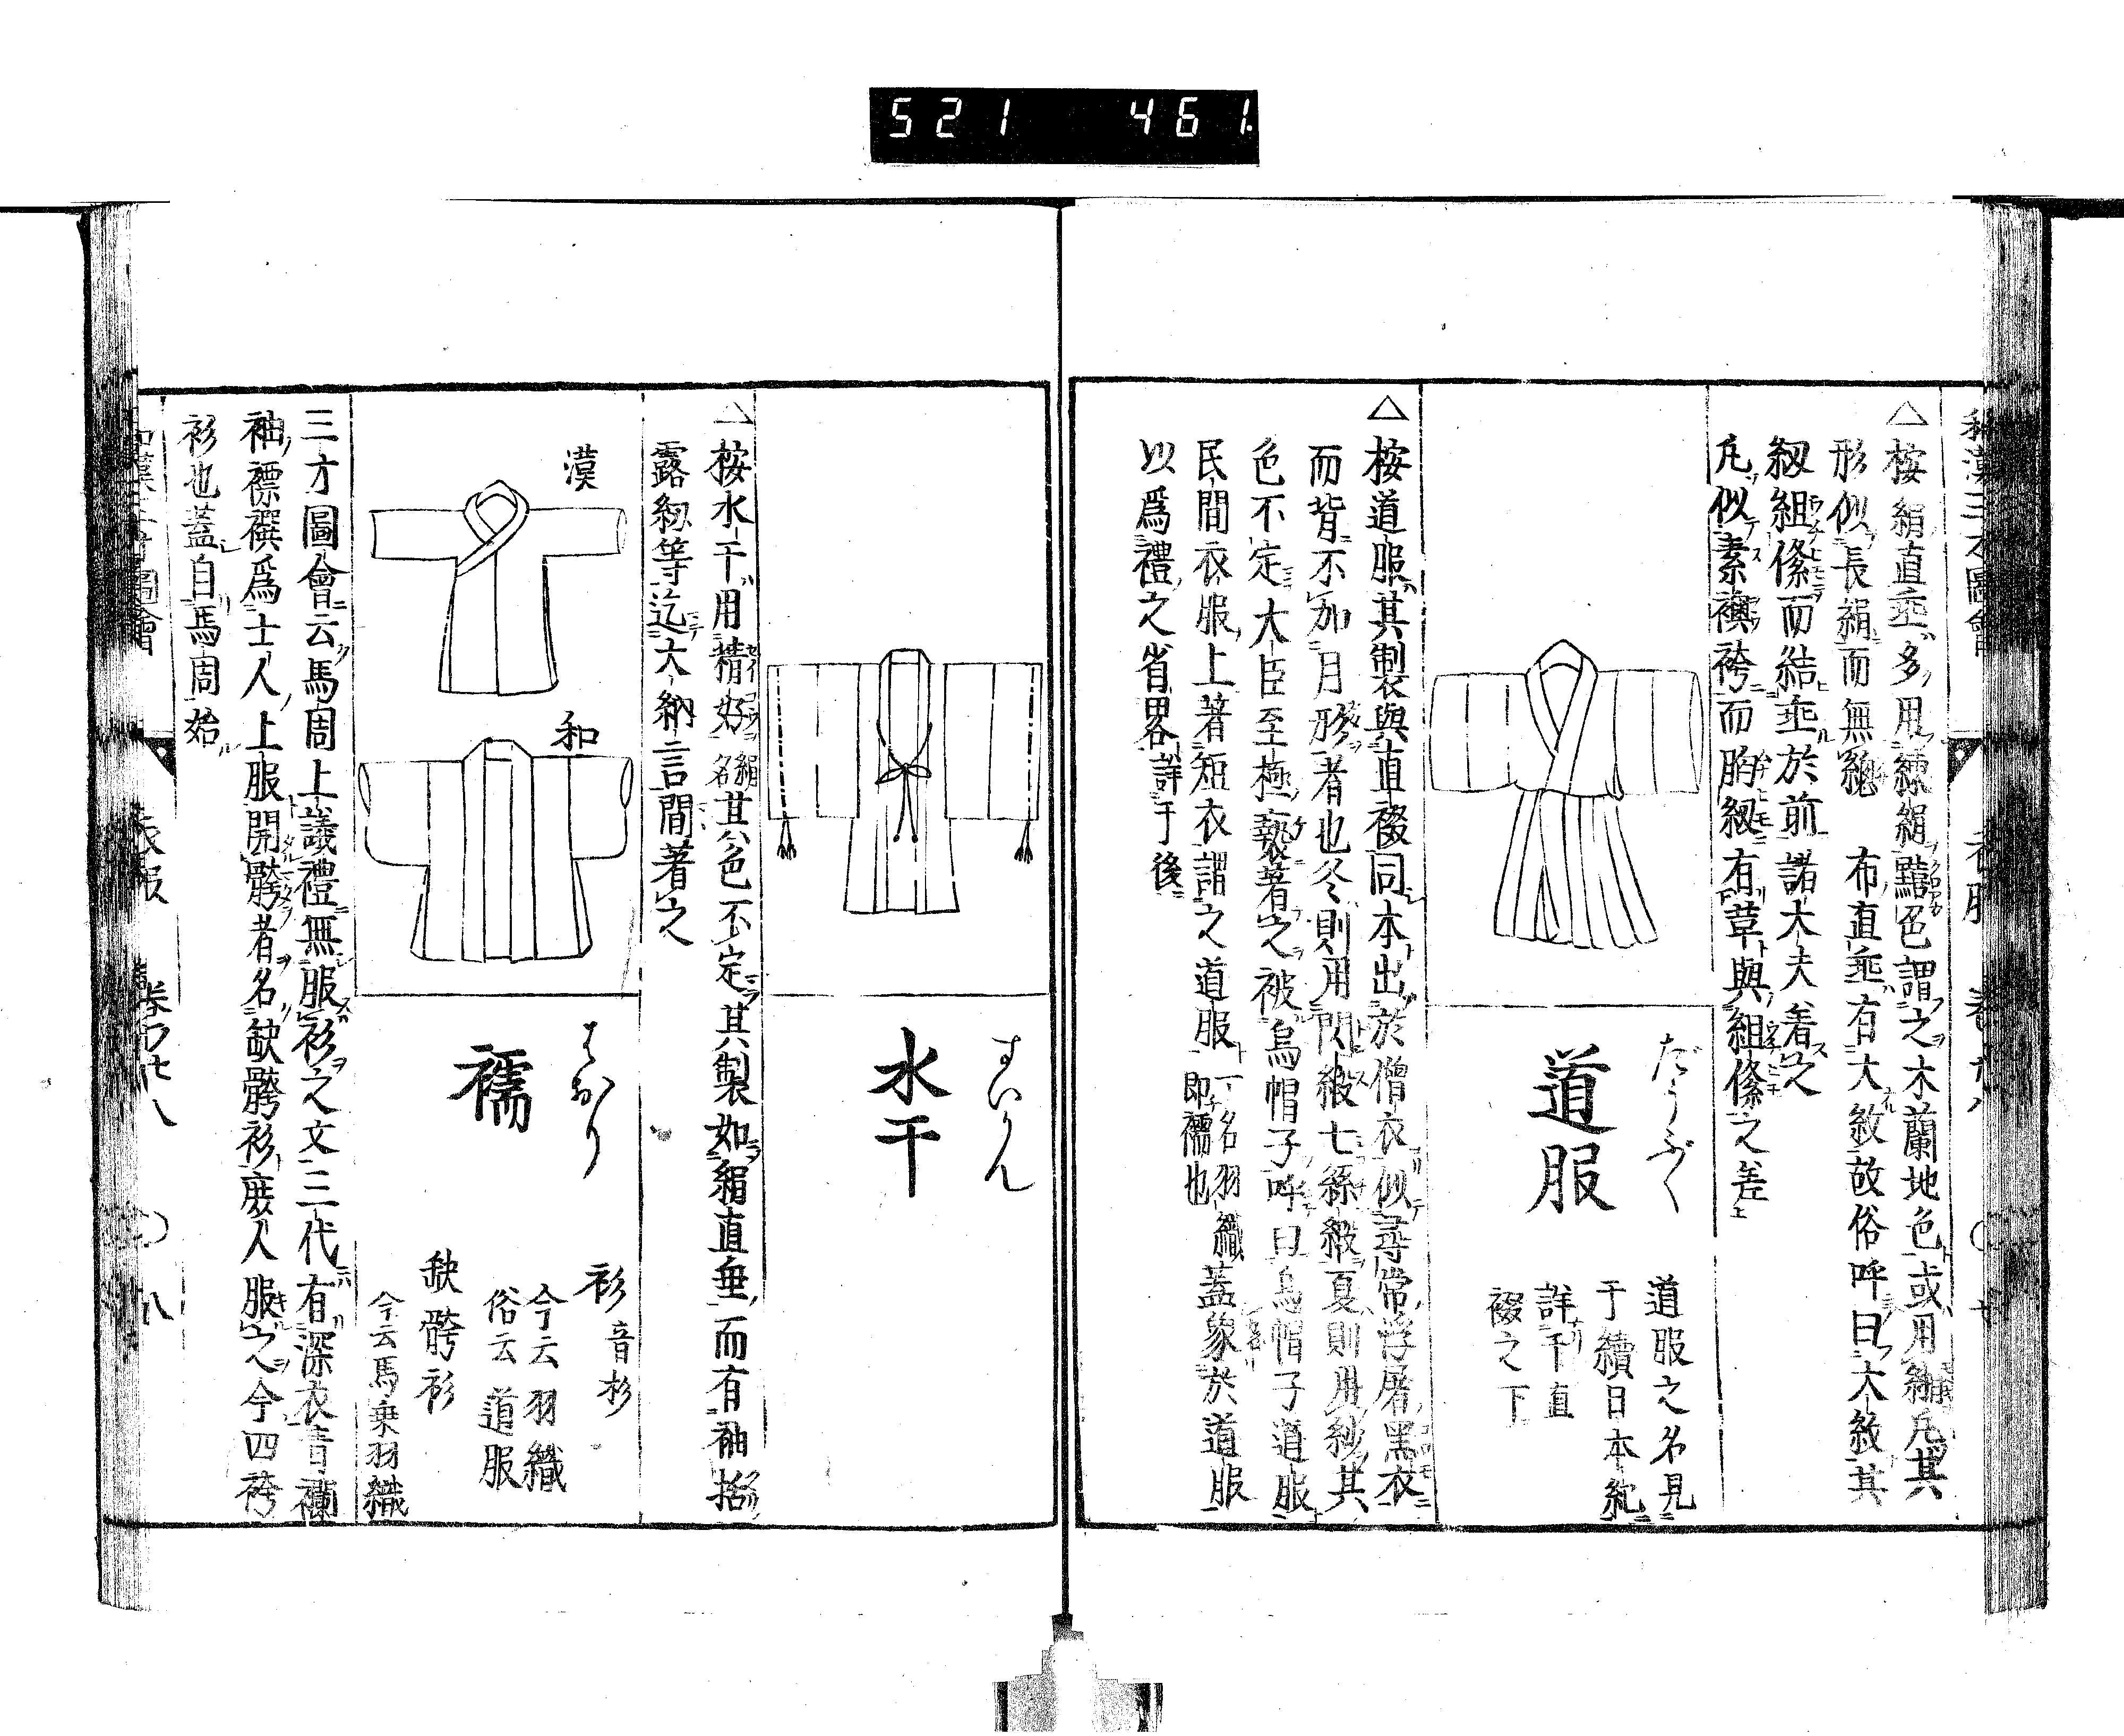 521 461
和漢三才圖會
△按絹直垂多用練絹黯色謂之木蘭地色或用縐凡其
形似長絹而無緫 布直垂有大紋故俗呼曰大紋其
紐組絛而結垂於前諸大夫著之
凡似素襖袴而胸紐有草與組絛之差
だうぶく
道服
道服之名見
于續日本紀
詳于直
裰之下
△按道服其製與直裰同本出於僧衣似尋常浮屠黑衣
而背不加月形者也冬則用閃緞七絲緞夏則用紗其
色不定大臣至極褻著之被烏帽子呼曰烏帽子道服
民間衣服上著短衣謂之道服一名羽織
即襦也
蓋象於道服
以爲禮之省畧詳于後
すいかん
水干
△按水干用精好絹名其色不定其製如絹直垂而有袖括
露紐等迄大納言間著之
漢
和
はおり
襦
衫音杉
今云羽織
俗云道服
缺骻衫
今云馬乗羽織
三才圖會云馬周上議禮無服衫之文三代有深衣青襴
袖褾襈爲士人上服開骻者名缺骻衫庶人服之今四袴
衫也蓋自馬周始